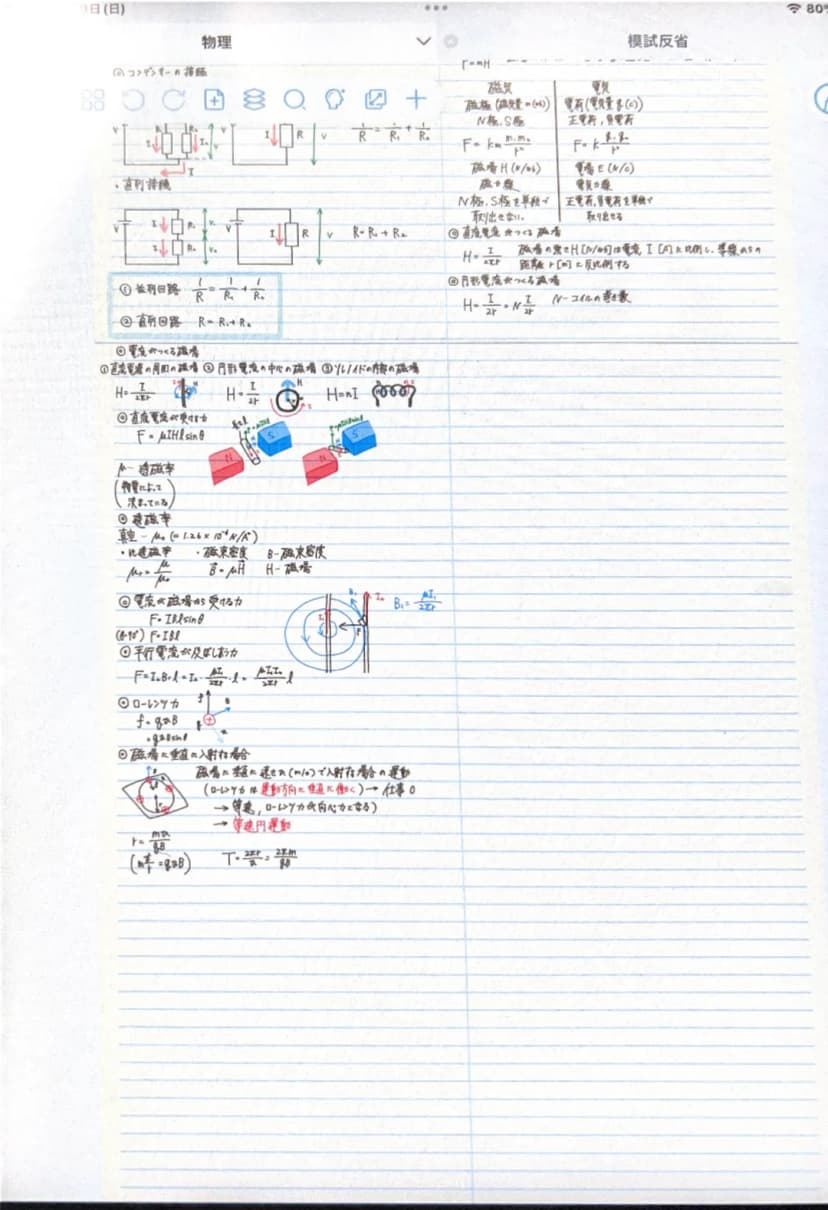 日(日)
80%
物理
模試反省
◎コンデンサーの接続
V R₁ R₂ I₁ I₂ V
V I R V
1/R = 1/R₁ + 1/R₂
・直列接続
V I R₁ V₁ I R₂ V₂
V I R V
R=R₁+R₂
① 並列回路 1/R = 1/R₁ + 1/R₂
② 直列回路 R=R₁+R₂
F=mH
磁気
電気
磁極(磁気量m(Wb))
電荷(電気量q(C))
N極、S極
正電荷、負電荷
F=km m₁m₂/r²
F=k q₁q₂/r²
磁場H(N/Wb)
電場E(N/C)
磁力線
電気力線
N極、S極を単独で
取り出せない
正電荷、負電荷を単独で
取り出せる
◎直線電流がつくる磁場
H=I/2πr 磁場の強さH[N/Wb]は電流I[A]に比例し、導線からの
距離r[m]に反比例する
◎円形電流がつくる磁場
H=I/2r=N I/2r N-コイルの巻き数
◎電流がつくる磁場
①直線電流の周囲の磁場 ②円形電流の中心の磁場 ③ソレノイドの内部の磁場
H=I/2πr H=I/2r H=nI
◎直線電流が受ける力
F=μIHlsinθ
N S
N S
μ-透磁率
(物質によって
決まっている)
◎透磁率
真空-μ₀(=1.26×10⁻⁶N/A²)
・比透磁率 ・磁束密度 B-磁束密度
μr=μ/μ₀ B=μH H-磁場
◎電流が磁場から受ける力
F=IBlsinθ
(θ=90°) F=IBl
B₁ I₂ B₁=μI₁/2πr
◎平行電流が及ぼし合う力
F=I₂B₁l=I₂・μI₁/2πr・l=μI₁I₂/2πr l
◎ローレンツ力
f=qvB
=qvBsinθ
◎磁場に垂直に入射した場合
磁場に垂直に速さv(m/s)で入射した場合の運動
(ローレンツ力は運動方向に垂直に働く)→仕事0
→等速、ローレンツ力が向心力となる)
→等速円運動
r=mv/qB
(m v²/r=qvB) T=2πr/v=2πm/qB